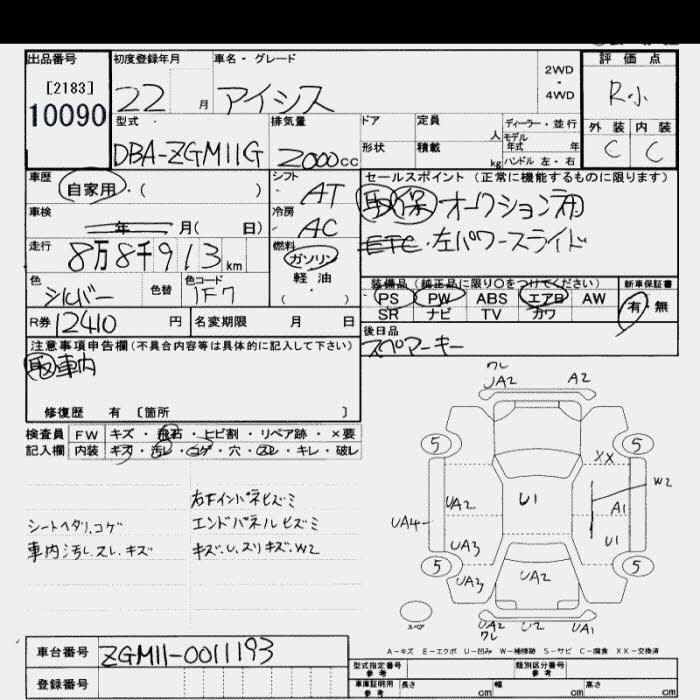 出品番号
[2183]
10090
初度登録年月
22 月
車名・グレード
アイシス
2WD
・
4WD
評価点
R小
外装 内装
C C
型式
DBA-ZGM11G
排気量
2000cc
ドア
形状
定員 人
積載 kg
ディーラー・並行
モデル年式 年
ハンドル 左・右
車歴
自家用・( )
シフト
AT
セールスポイント (正常に機能するものに限ります)
取 保 オークション用
ETC・左パワースライド
車検
年 月( 日)
冷房
AC
走行
8万8千913km
燃料
ガソリン
軽油
( )
色
シルバー
色替
色コード
1F7
装備品 (純正品に限り○をつけてください)
PS PW ABS エアロ AW
SR ナビ TV カワ
新車保証書
有・無
R券 12410 円
名変期限 月 日
後日品
スペアーキー
注意事項申告欄(不具合内容等は具体的に記入して下さい)
取 車内
修復歴 有 〔箇所 〕
検査員 FW キズ・飛石・ヒビ割・リペア跡・×要
記入欄 内装 キズ・汚レ・コゲ・穴・スレ・キレ・破レ
シートヘタリ、コゲ
車内汚レ、スレ、キズ
右下インパネヒズミ
エンドパネルヒズミ
キズ、U、スリキズ、W2
ワレ
UA2 A2
5 5
XX
W2
UA2 U1 A1
UA4
UA3 U1
5 5
UA3 UA2
スペア
UA2 U2 UA1
ワレ
A-キズ E-エクボ U-凹み W-補修跡 S-サビ C-腐食 XX-交換済
車台番号 ZGM11-0011193
登録番号
型式指定番号 参考
類別区分番号 参考
車庫証明用 参考 長さ cm 幅 cm 高さ cm